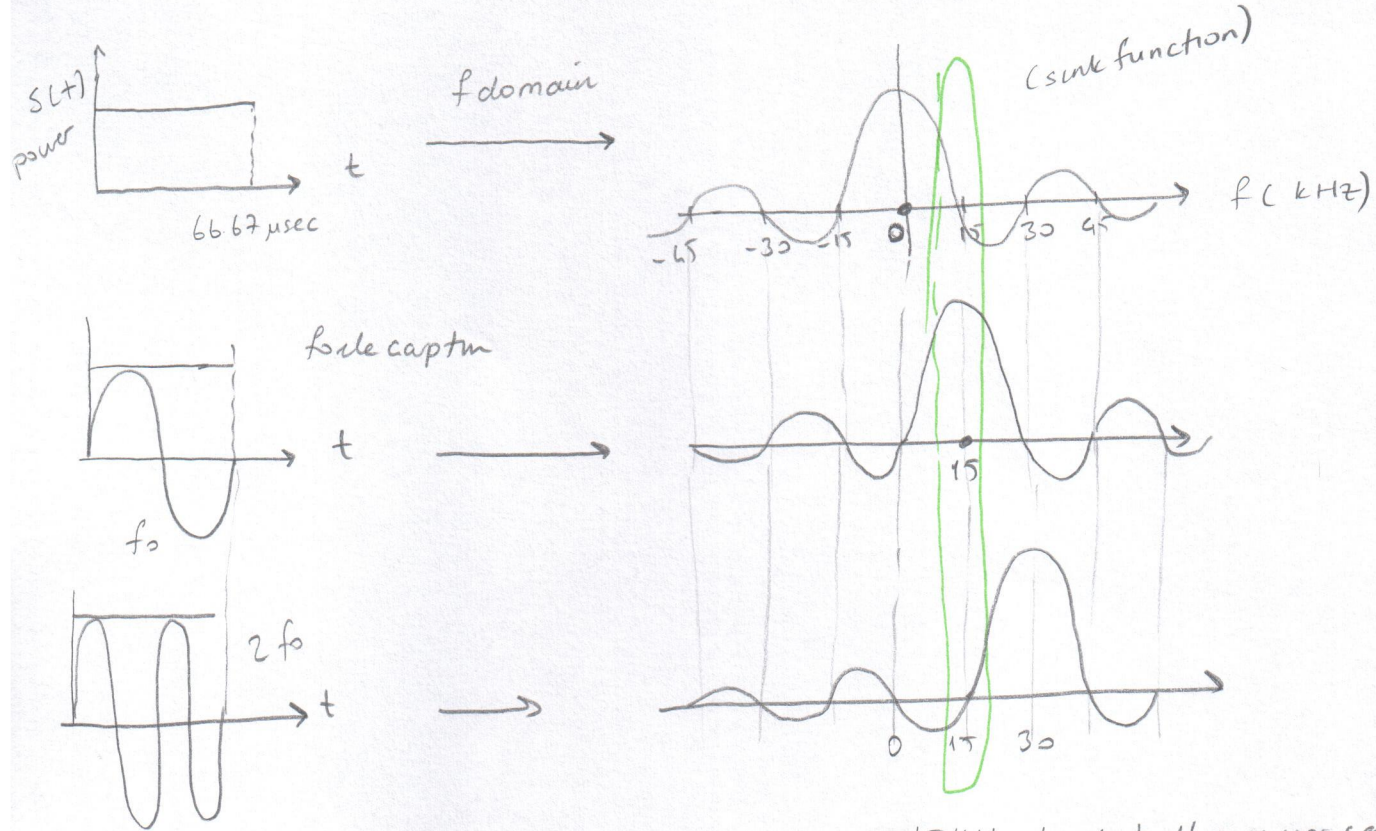 S(t)
power
t
66.67 µsec
f domain
(sink function)
f ( kHz)
-45 -30 -15 0 15 30 45
t
f0
15
2 f0
t
0 15 30